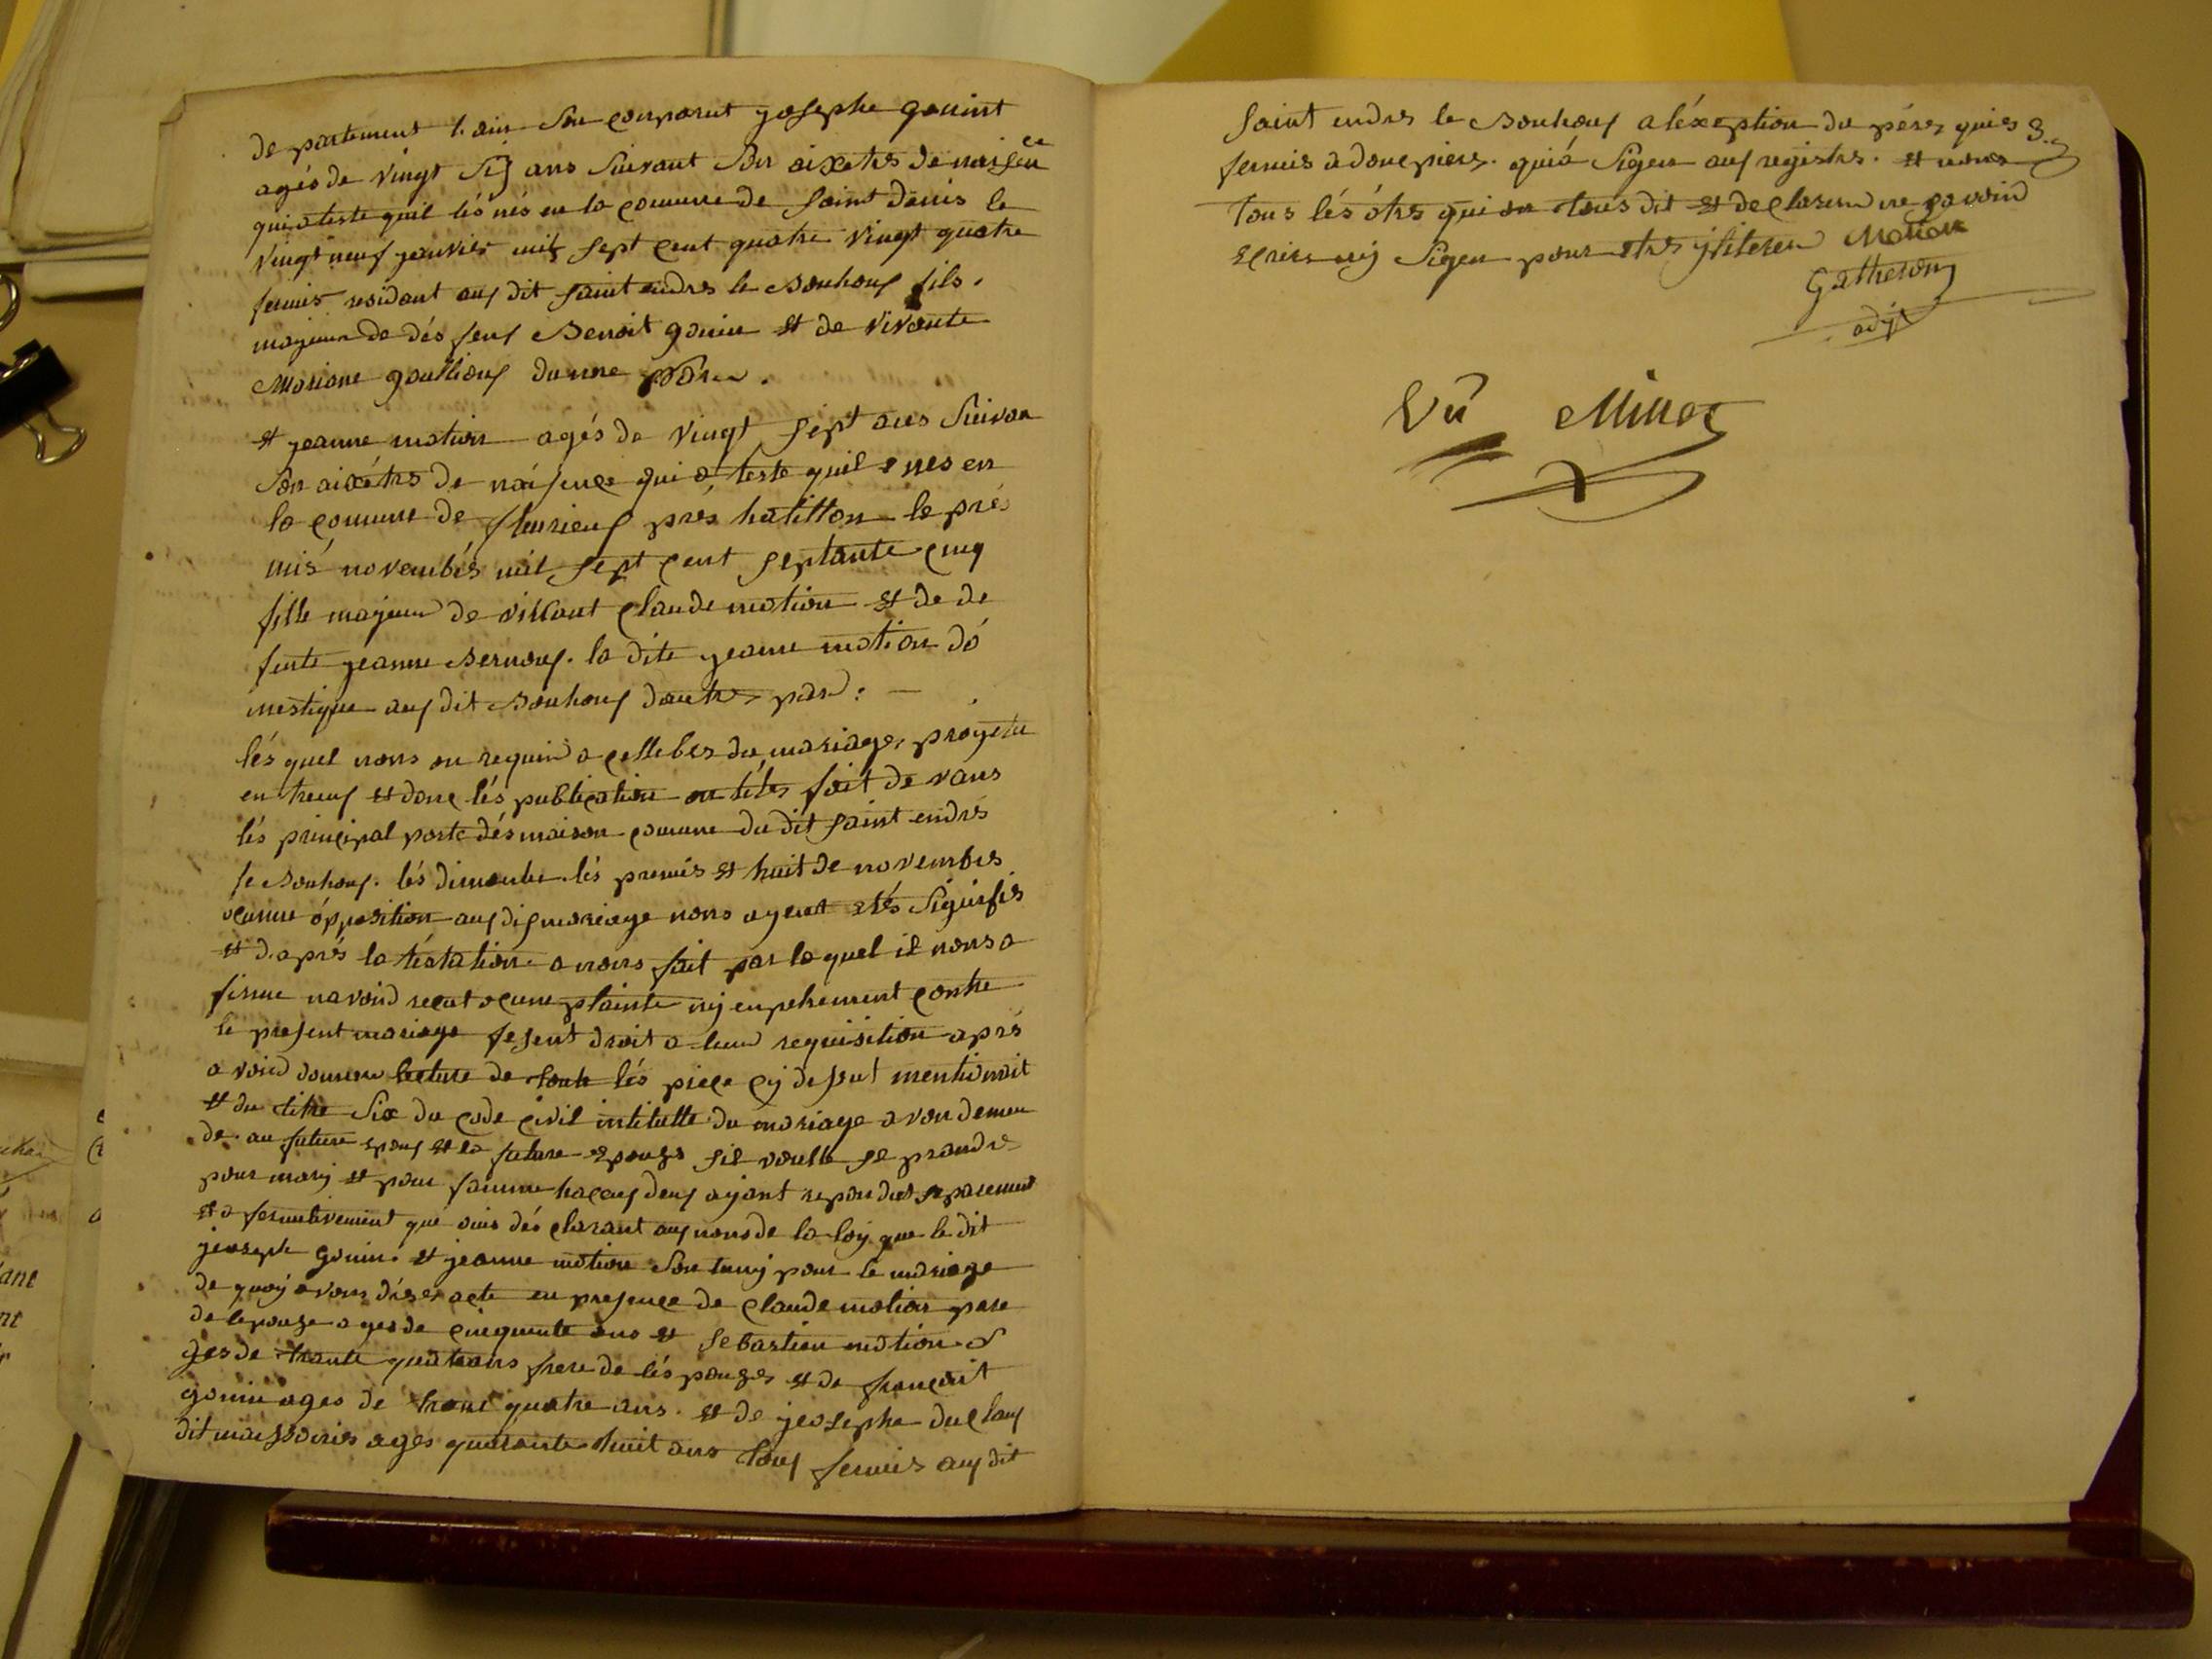 de partement l. ain son conparut josephe gouint
agés de vingt sij ans suivant son aixetrs de naisence
qui ateste quil lés nés en la commune de saint denis le
vingt neuf janvier mil sept cent quatre vingt quatre
fermier residant auf dit saint endres le Bouhouf fils.
majeur de dés feuf Benoit gouin et de vivante
Mariane goulliouf dunne
et jeanne motion agés de vingt sept ans suivan
son aixétrs de naisence qui a teste quil e nes en
la commune de fleurieuf prés hatillon le pré
mié novembés mil sept cent septante cinq
fille majeur de vivant claude motion et de de
funte jeanne Bernouf. la dite jeanne motion dó
mestique auf dit Bouhouf dautre par :
lés quel nous on requir a celleber du mariage projetu
en treuf et donc lés publication on tétés fait devans
lés principal porte dés maison comune du dit saint endrés
le Bouhouf. lés dimanche lés premié et huit de novembres
ocunne ópposition auf dis mariage nous ayent etés signifiés
et daprés la téstation a nous fait par la quel il nous a
firme navoir recut ocune plainte nij enpehement contre
le present mariage fesent droit a leur requisition aprés
a voir donnere lecture de toute lés piece cij dessut mentionnit
et du titre six du code civil intitulle du mariage a von deman
de. au future epouf et la future epouse sil voulle se prandre
pour marij et pour famme hacouf deuf ayant repondut separement
et a fermativement que ouis dés clarant auf nons de la loij que le dit
jeoseph gouin et jeanne motion son unij pour le mariage
de quoij avons dréser acte en presence de claude motion pere
de lepouse ages de cinquente ans et sebastien motion a
ges de trante quatrans frere de lés pouses et de françoit
gouin ages de trant quatre ans. et de jeosephe duclouf
dit maissonier ages quarante huit ans touf fermiés auf dit
saint endres le Bouhouf a léxeption du péres quies 3.
fermié a doncpiere. quia signer auf registrs. et nous
tous lés ótrs qui on tous dit et declarer ne savoir
ecrire nij signer pour etre jlliterer Motion
Gatheron
adjt
Vû Minot